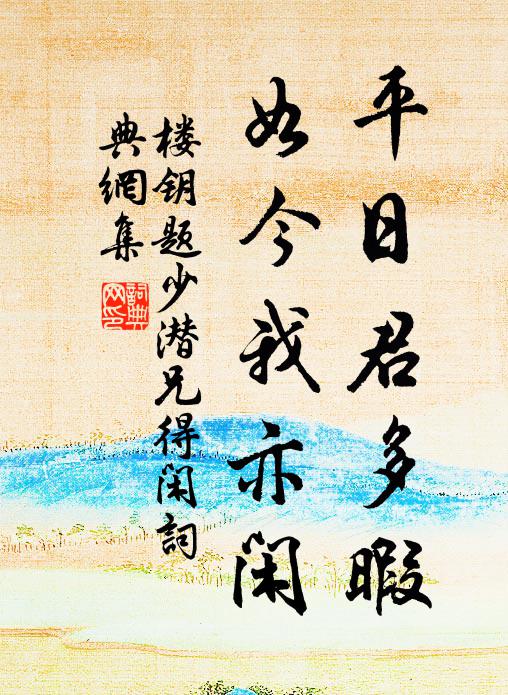 平日君多暇
如今我亦闲
楼钥题少潜兄得闲詞
典網集
詞典网印